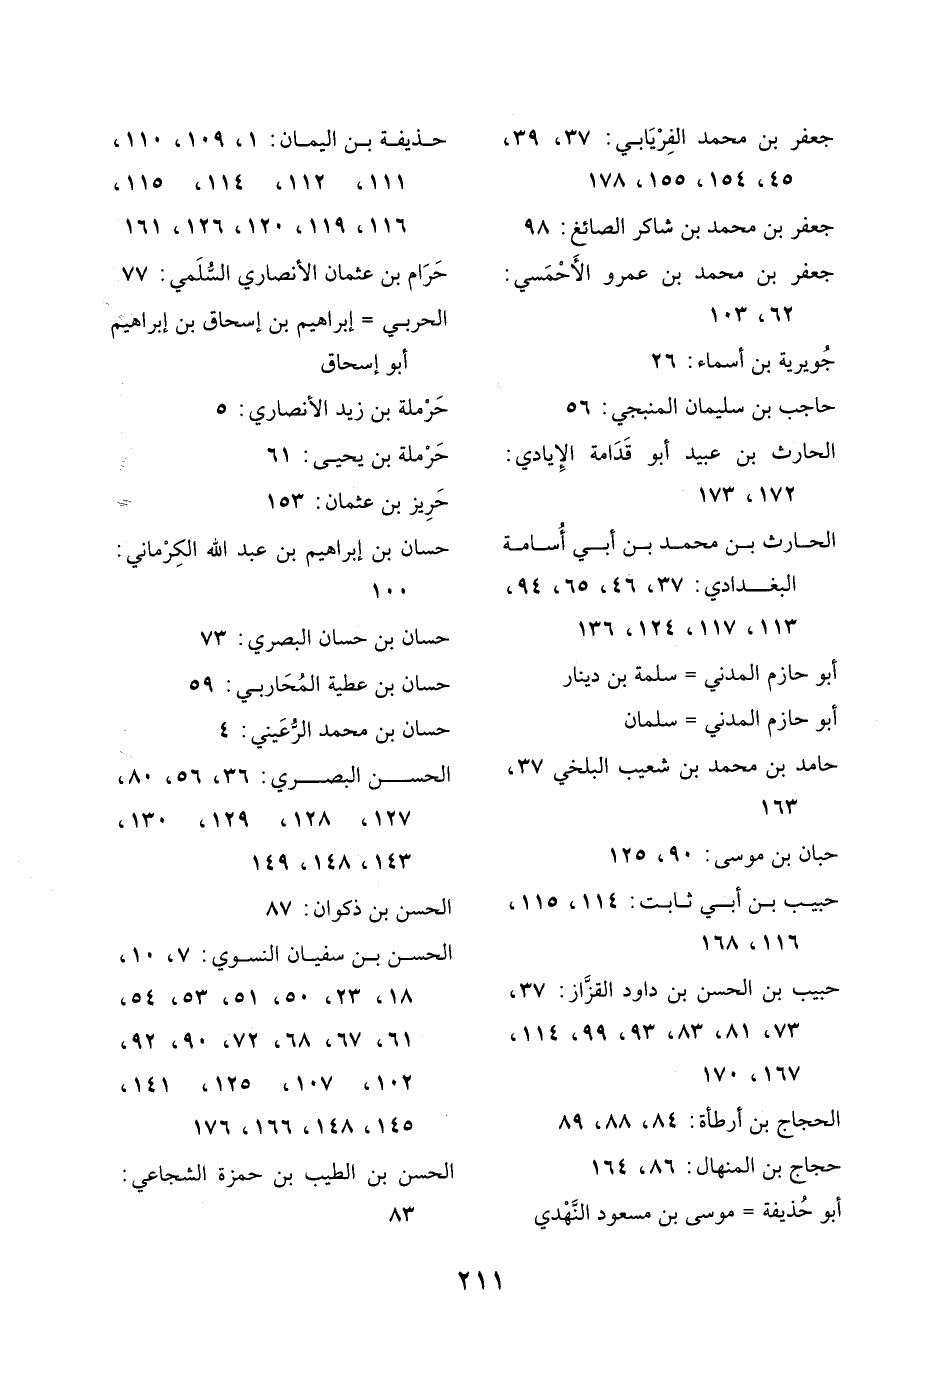 جعفر بن محمد الفِرْيَابي: ٣٧، ٣٩،
٤٥، ١٥٤، ١٥٥، ١٧٨
جعفر بن محمد بن شاكر الصائغ: ٩٨
جعفر بن محمد بن عمرو الأَحْمَسي:
٦٢، ١٠٣
جُويرية بن أسماء: ٢٦
حاجب بن سليمان المنبجي: ٥٦
الحارث بن عبيد أبو قَدَامة الإيادي:
١٧٢، ١٧٣
الحارث بن محمد بن أبي أُسامة
البغدادي: ٣٧، ٤٦، ٦٥، ٩٤،
١١٣، ١١٧، ١٢٤، ١٣٦
أبو حازم المدني = سلمة بن دينار
أبو حازم المدني = سلمان
حامد بن محمد بن شعيب البلخي ٣٧،
١٦٣
حبان بن موسى: ٩٠، ١٢٥
حبيب بن أبي ثابت: ١١٤، ١١٥،
١١٦، ١٦٨
حبيب بن الحسن بن داود القزَّاز: ٣٧،
٧٣، ٨١، ٨٣، ٩٣، ٩٩، ١١٤،
١٦٧، ١٧٠
الحجاج بن أرطأة: ٨٤، ٨٨، ٨٩
حجاج بن المنهال: ٨٦، ١٦٤
أبو حُذيفة = موسى بن مسعود النَّهْدي
حذيفة بن اليمان: ١، ١٠٩، ١١٠،
١١١، ١١٢، ١١٤، ١١٥،
١١٦، ١١٩، ١٢٠، ١٢٦، ١٦١
حَرَام بن عثمان الأنصاري السُّلَمي: ٧٧
الحربي = إبراهيم بن إسحاق بن إبراهيم
أبو إسحاق
حَرْملة بن زيد الأنصاري: ٥
حَرْملة بن يحيى: ٦١
حَرِيز بن عثمان: ١٥٣
حسان بن إبراهيم بن عبد الله الكِرْماني:
١٠٠
حسان بن حسان البصري: ٧٣
حسان بن عطية المُحَاربي: ٥٩
حسان بن محمد الرُّعَيني: ٤
الحسن البصري: ٣٦، ٥٦، ٨٠،
١٢٧، ١٢٨، ١٢٩، ١٣٠،
١٤٣، ١٤٨، ١٤٩
الحسن بن ذكوان: ٨٧
الحسن بن سفيان النسوي: ٧، ١٠،
١٨، ٢٣، ٥٠، ٥١، ٥٣، ٥٤،
٦١، ٦٧، ٦٨، ٧٢، ٩٠، ٩٢،
١٠٢، ١٠٧، ١٢٥، ١٤١،
١٤٥، ١٤٨، ١٦٦، ١٧٦
الحسن بن الطيب بن حمزة الشجاعي:
٨٣
٢١١